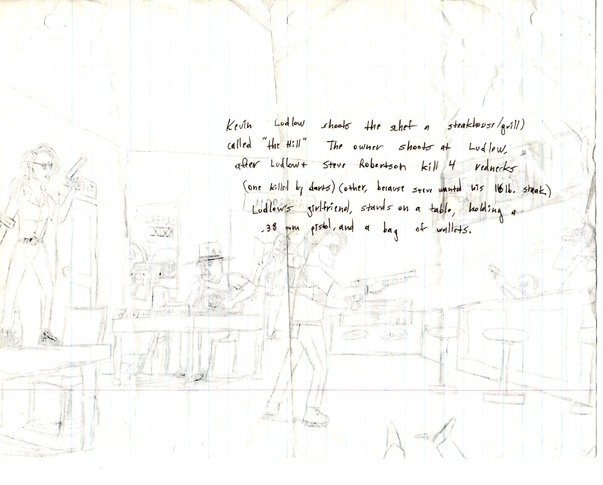 Kevin Ludlow shoots the chef a steakhouse/grill)
called "the Hill" The owner shoots at Ludlow,
after Ludlow+ Steve Robertson kill 4 rednecks
(one killed by darts) (other, because steve wanted his 16 lb. steak)
Ludlow's girlfriend, stands on a table, holding a
.38 mm pistol, and a bag of wallets.